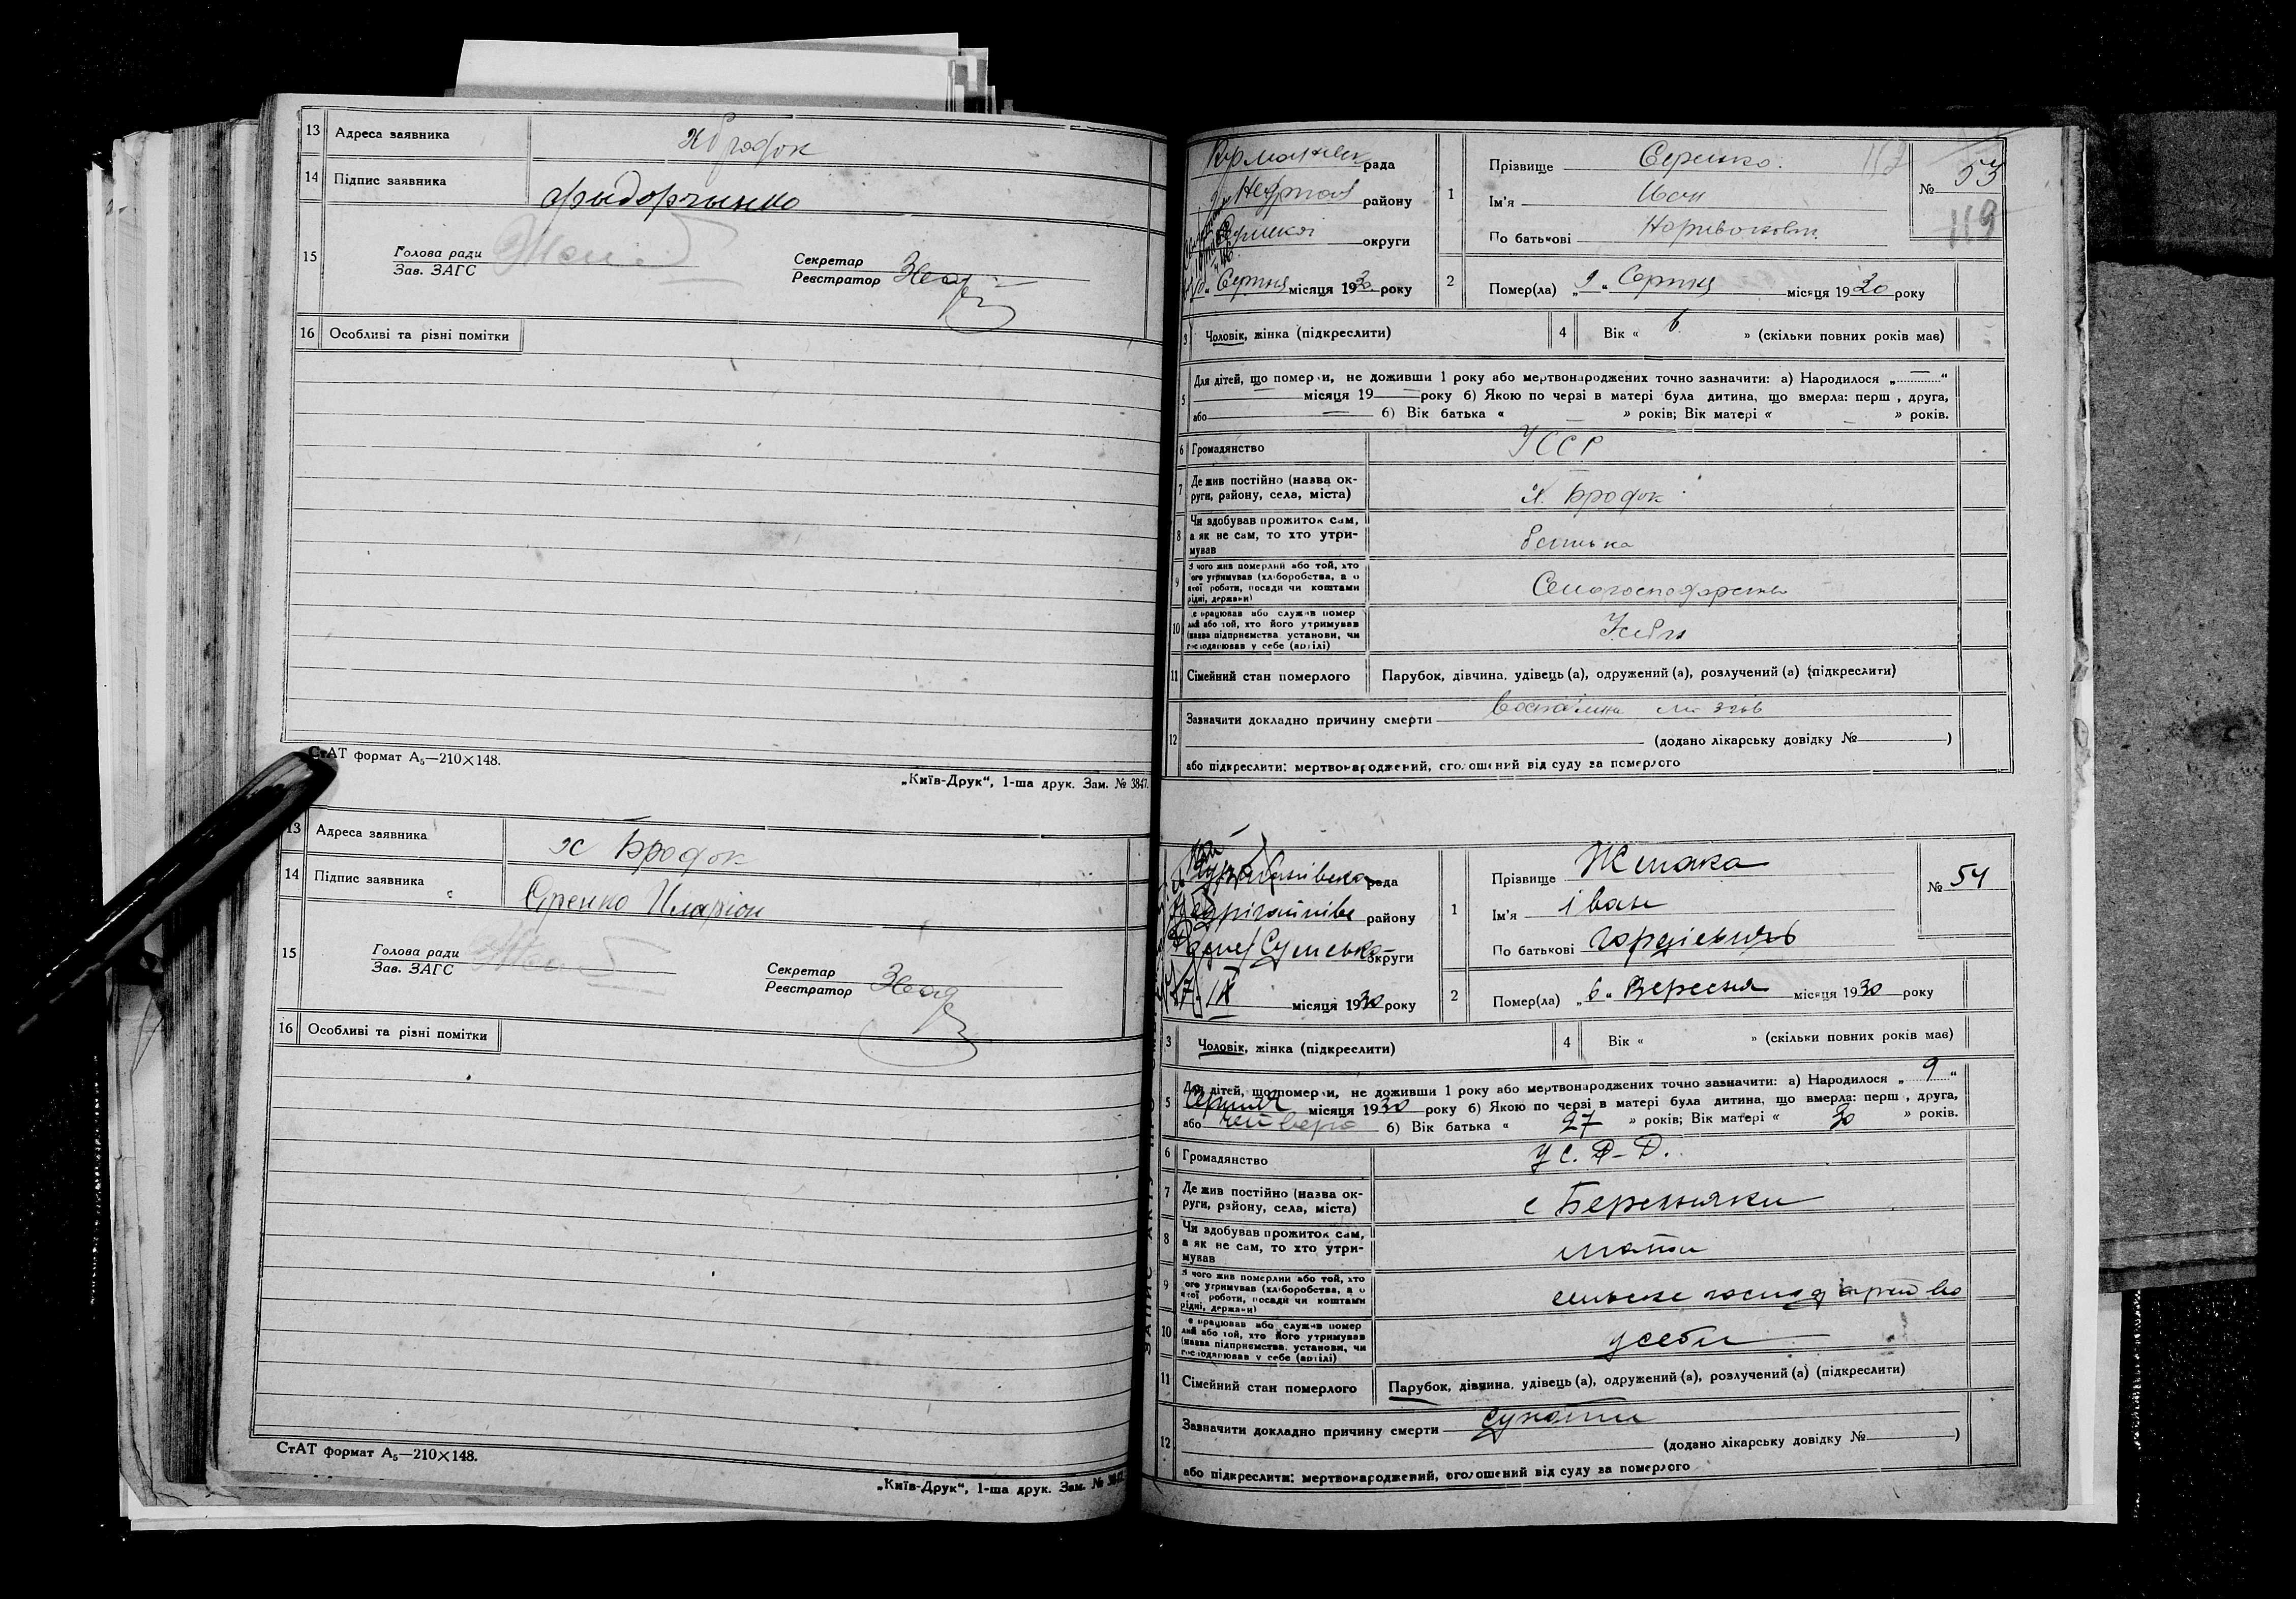 13 Адреса заявника
14 Підпис заявника
15 Голова ради
Зав. ЗАГС
Секретар
Реєстратор
16 Особливі та різні помітки
СтАТ формат А₅—210×148.
„Київ-Друк“, 1-ша друк. Зам. № 3847.
13 Адреса заявника х Бродок
14 Підпис заявника Иларіон
15 Голова ради
Зав. ЗАГС
Секретар
Реєстратор
16 Особливі та різні помітки
СтАТ формат А₅—210×148.
„Київ-Друк“, 1-ша друк. Зам. №
рада
району
округи
Серпня місяця 1930 року
1 Прізвище
Ім'я
По батькові
№ 53
119
2 Помер(ла) „9“ Серпня місяця 1930 року
3 Чоловік, жінка (підкреслити)
4 Вік « 6 » (скільки повних років має)
5 Для дітей, що померли, не доживши 1 року або мертвонароджених точно зазначити: а) Народилося „ “
місяця 19 року б) Якою по черзі в матері була дитина, що вмерла: перш , друга,
або б) Вік батька « » років; Вік матері « » років.
6 Громадянство УССР
7 Де жив постійно (назва ок-
руги, району, села, міста) х. Бродок
8 Чи здобував прожиток сам,
а як не сам, то хто утри-
мував батька
9 З чого жив померлий або той, хто
його утримував (хліборобства, а о
якої роботи, посади чи коштами
рідні, держави)
10 Де працював або служив помер
лий або той, хто його утримував
(назва підприємства установи, чи
господарював у себе (артілі) Усебя
11 Сімейний стан померлого Парубок, дівчина, удівець (а), одружений (а), розлучений (а) (підкреслити)
12 Зазначити докладно причину смерти
(додано лікарську довідку № )
або підкреслити: мертвонароджений, оголошений від суду за померлого
рада
району
округи
IX місяця 1930 року
1 Прізвище Жмака
Ім'я іван
По батькові гордієвичь
№ 54
2 Помер(ла) „6“ Вересня місяця 1930 року
3 Чоловік, жінка (підкреслити)
4 Вік « » (скільки повних років має)
5 Для дітей, що померли, не доживши 1 року або мертвонароджених точно зазначити: а) Народилося „ 9 “
Серпня місяця 1930 року б) Якою по черзі в матері була дитина, що вмерла: перш , друга,
або четверта б) Вік батька « 27 » років; Вік матері « 30 » років.
6 Громадянство
7 Де жив постійно (назва ок-
руги, району, села, міста) с Березняки
8 Чи здобував прожиток сам,
а як не сам, то хто утри-
мував мати
9 З чого жив померлий або той, хто
його утримував (хліборобства, а о
якої роботи, посади чи коштами
рідні, держави) сильске господарство
10 Де працював або служив помер
лий або той, хто його утримував
(назва підприємства установи, чи
господарював у себе (артілі) усеби
11 Сімейний стан померлого Парубок, дівчина, удівець (а), одружений (а), розлучений (а) (підкреслити)
12 Зазначити докладно причину смерти сухоти
(додано лікарську довідку № )
або підкреслити: мертвонароджений, оголошений від суду за померлого